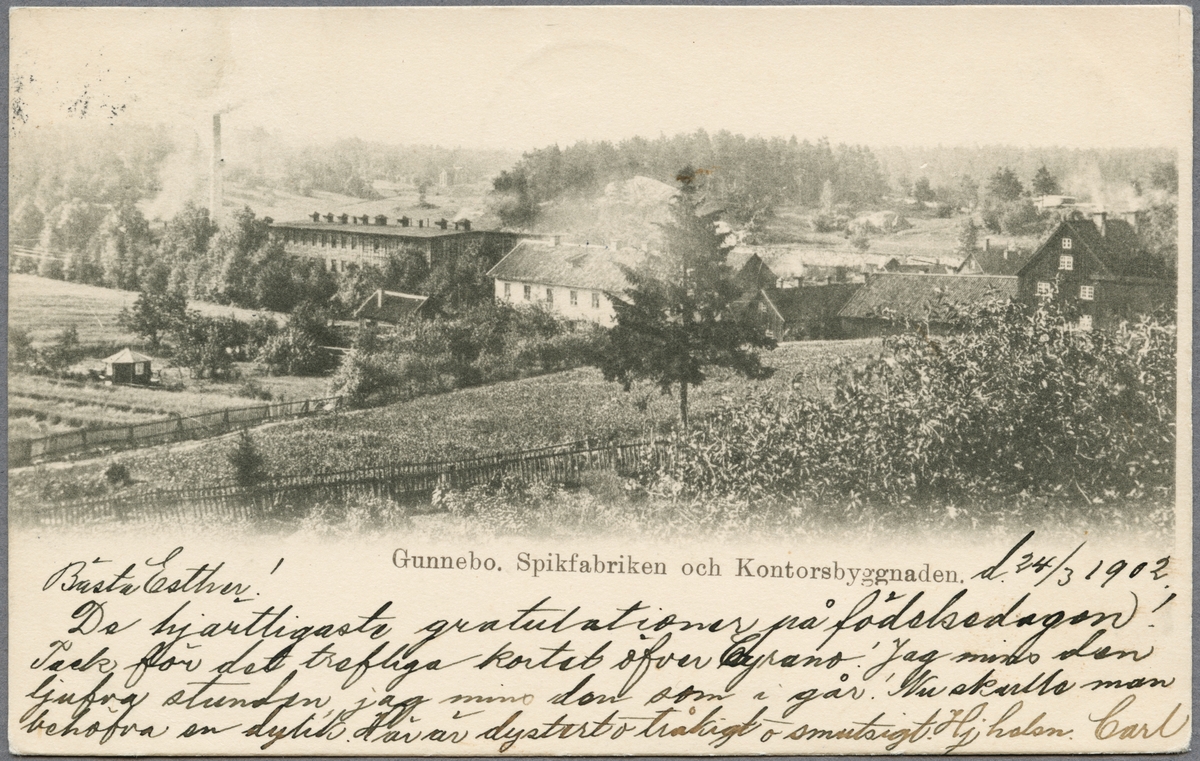 Gunnebo. Spikfabriken och Kontorsbyggnaden.
d. 24/3 1902.
Bästa Esther!
De hjärtligaste gratulationer på födelsedagen!
Tack för det trefliga kortet öfver Cyrano! Jag mins den
ljufva stunden, jag mins den som i går! Nu skulle man
behöfva en dylik. Här är dystert o tråkigt o smutsigt. Hj. helsn. Carl